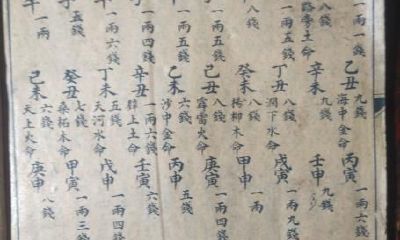 一兩一錢
乙丑 九錢 海中金命 丙寅 一兩六錢
路旁土命 八錢
辛未 九錢 壬申 九錢
一兩五錢
丁丑 八錢 澗下水命 戊寅 一兩九錢
八錢
癸未 八錢 楊柳木命 甲申 一兩
八錢
己丑 八錢 霹靂火命 庚寅 一兩四錢
一兩五錢
乙未 六錢 沙中金命 丙申 五錢
一兩四錢
辛丑 一兩六錢 壁上土命 壬寅 六錢
一兩六錢
丁未 五錢 天河水命 戊申 一兩四錢
五錢
癸丑 七錢 桑柘木命 甲寅 一兩三錢
一兩
己未 六錢 天上火命 庚申 八錢